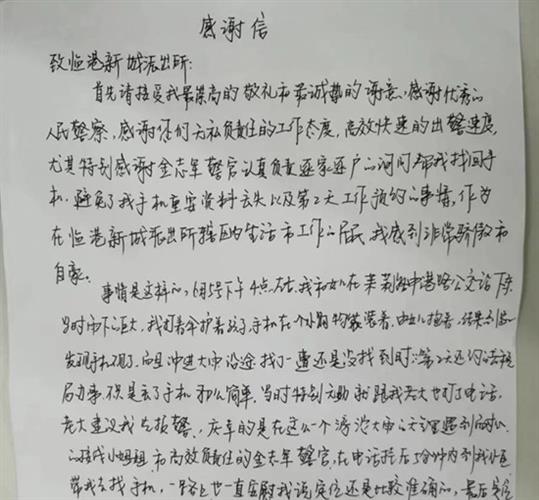 感谢信
致临港新城派出所：
首先请接受我最崇高的敬礼和最诚挚的谢意，感谢优秀的
人民警察，感谢你们无私负责任的工作态度，高效快速的出警速度，
尤其特别感谢金志军警官认真负责逐家逐户的询问帮我找回手
机，避免了我手机重要资料丢失以及第2天工作预约的事情，作为
在临港新城派出所辖区内生活和工作的居民，我感到非常骄傲和
自豪。
事情是这样的，6月5号下午4点左右，我和女儿在 公交站下车
当时雨下的巨大，我打着伞护着孩子，手机在一个外 物袋装着，由女儿 着，结果到家
发现手机不见了，而且冲进大雨沿途找了一遍还是没找到，第2天还约
局办事，不只是丢了手机那么简单，当时特别无助就跟我老大也打了电话，
老大建议我先报警，庆幸的是在这么一个 大雨的天里遇到
的接线小姐姐和高效负责任的金志军警官，在电话挂后5分钟内到我小区
带我去找手机，一路上也一直安慰我说定位还是比较准确的，最后